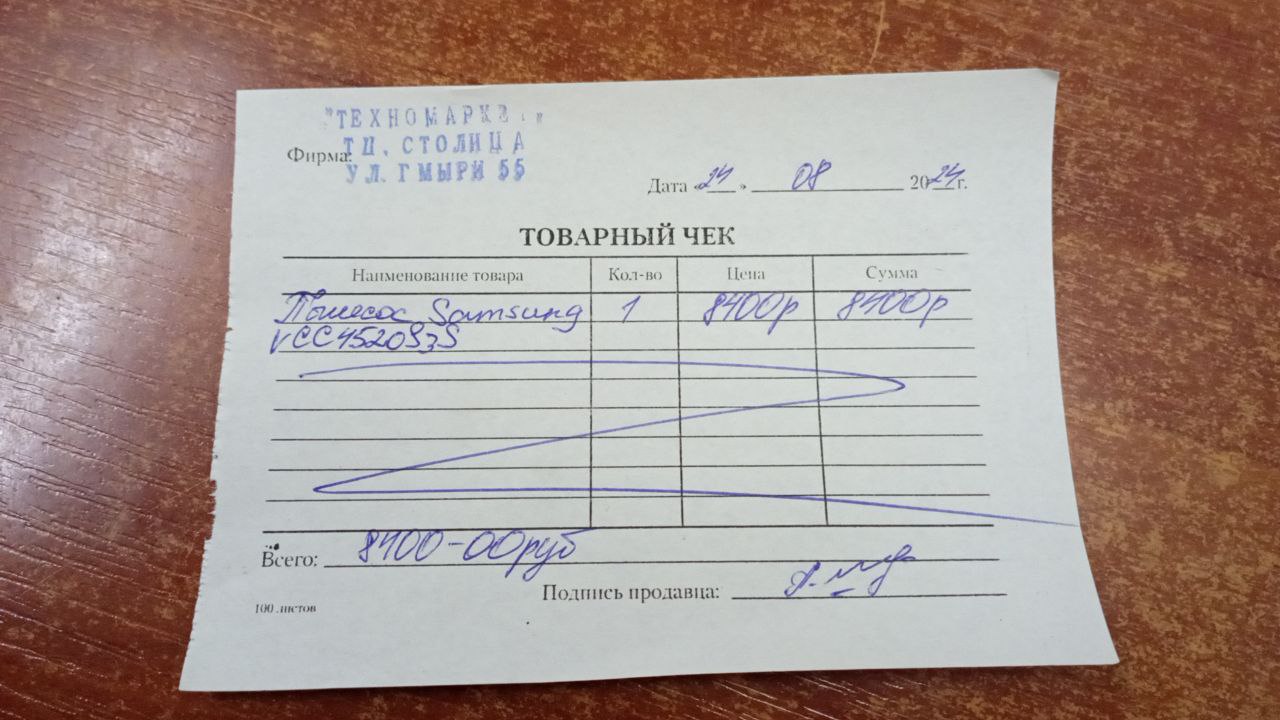 "ТЕХНОМАРКЕТ"
Фирма: ТЦ. СТОЛИЦА
УЛ. ГМЫРИ 55
Дата «24» 08 2024г.
ТОВАРНЫЙ ЧЕК
Наименование товара Кол-во Цена Сумма
Пылесос Samsung 1 8400р 8400р
VCC4520S3S
Всего: 8400-00руб
Подпись продавца:
100 листов